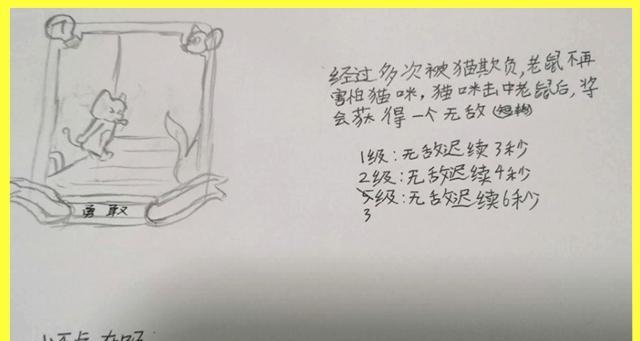 经过多次被猫欺负,老鼠不再
害怕猫咪,猫咪击中老鼠后,将
会获得一个无敌(短暂)
1级:无敌迟续3秒
2级:无敌迟续4秒
3级:无敌迟续6秒
勇敢